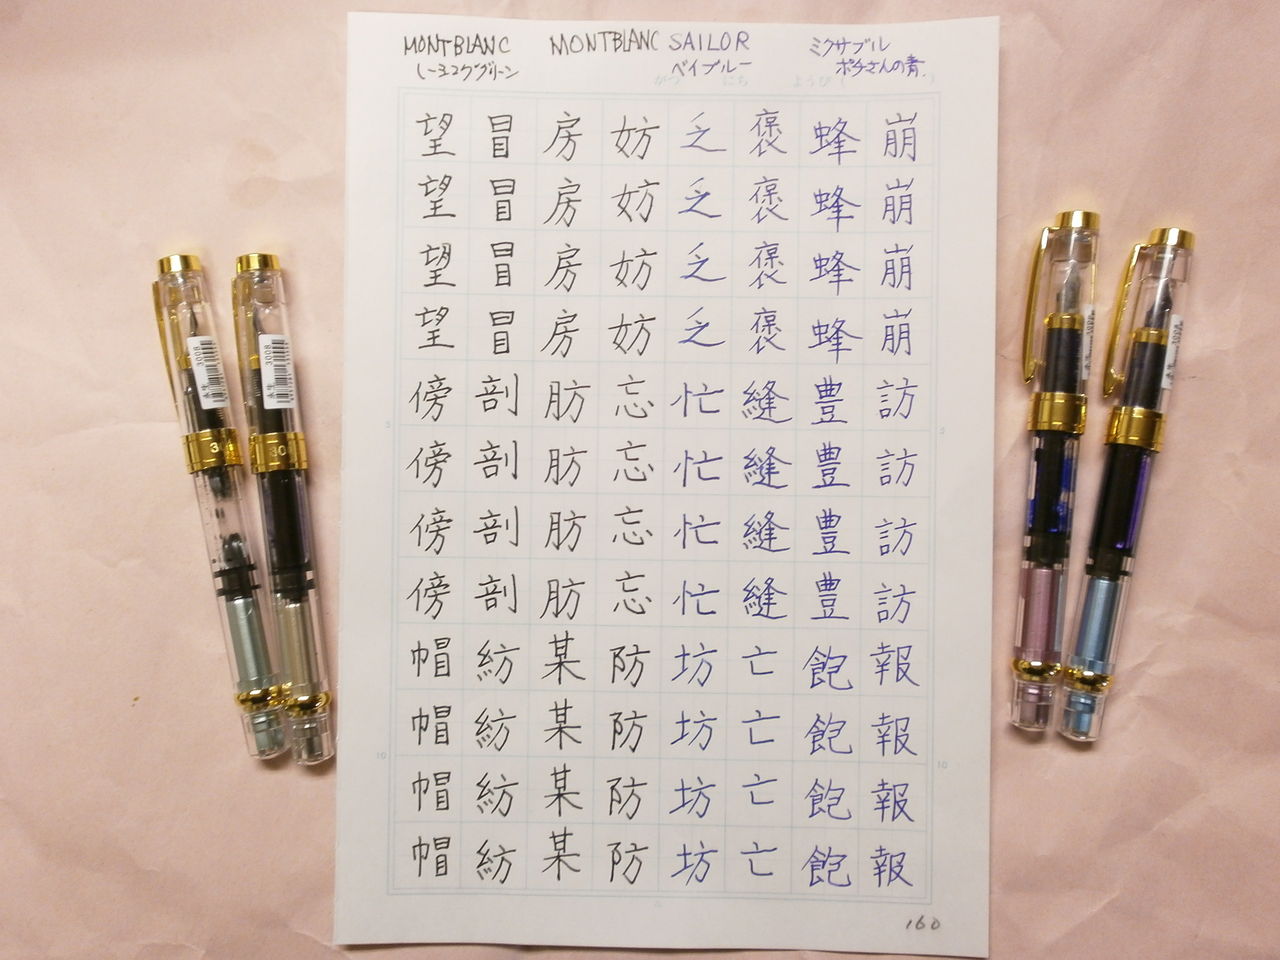 MONTBLANC
レーシンググリーン
MONTBLANC
SAILOR
ベイブルー
ミクサブル
ポチさんの青.
がつ にち ようび ( )
崩崩崩崩訪訪訪訪報報報報
蜂蜂蜂蜂豊豊豊豊飽飽飽飽
褒褒褒褒縫縫縫縫亡亡亡亡
乏乏乏乏忙忙忙忙坊坊坊坊
妨妨妨妨忘忘忘忘防防防防
房房房房肪肪肪肪某某某某
冒冒冒冒剖剖剖剖紡紡紡紡
望望望望傍傍傍傍帽帽帽帽
5
10
5
10
160
永生 3008
永生 3008
30
3008
3008